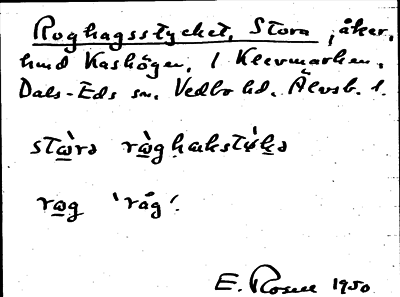 Roghagsstycket, Stora, åker,
hmd Kashögen, 1 Klevmarken,
Dals-Eds sn, Vedbo hd, Älvsb. l.
stὼrə rὼghakstyk̀ə
rωg 'råg'.
E. Rosell 1950